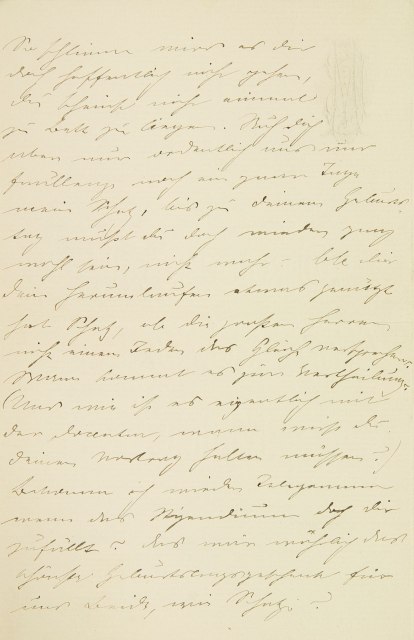 So schlimm wird es dir
doch hoffentlich nicht gehen,
du brauchst nicht einmal
zu Bett zu liegen. Ruh dich
eben nur ordentlich aus und
noch ein paar Tage
mein Schatz, bis zu deinem Geburts-
tag mußt du doch wieder ganz
wohl sein, nicht wahr? – Ob dir
dein Herumlaufen etwas genützt
hat Schatz, ob die großen Herren
nicht einem Jeden das Gleiche versprechen,
Wann kommt es zur Vertheilung?
(Und wie ist es eigentlich mit
der Docentur, wann wirst du
deinen Vortrag halten müssen?)
Bekomme ich wieder Telegramm
wenn das Stipendium doch dir
zufällt? Das wär wirklich das
schönste Geburtstagsgeschenk für
uns Beide, mein Schatz?